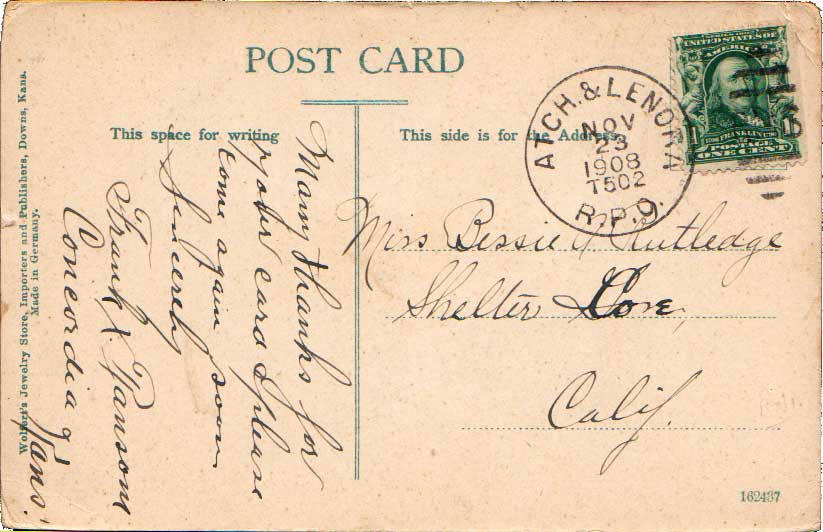 POST CARD
This space for writing
This side is for the Address
Wolfert's Jewelry Store, Importers and Publishers, Downs, Kans.
Made in Germany.
Many thanks for
your card & please
come again soon
Sincerely
Frank X. Ransom
Concordia
Kans.
SERIES 1902
UNITED STATES OF
AMERICA
FRANKLIN
POSTAGE
ONE CENT
ATCH. & LENORA
NOV
23
1908
T502
R.P.O.
Miss Bessie Rutledge
Shelter Cove,
Calif.
162437